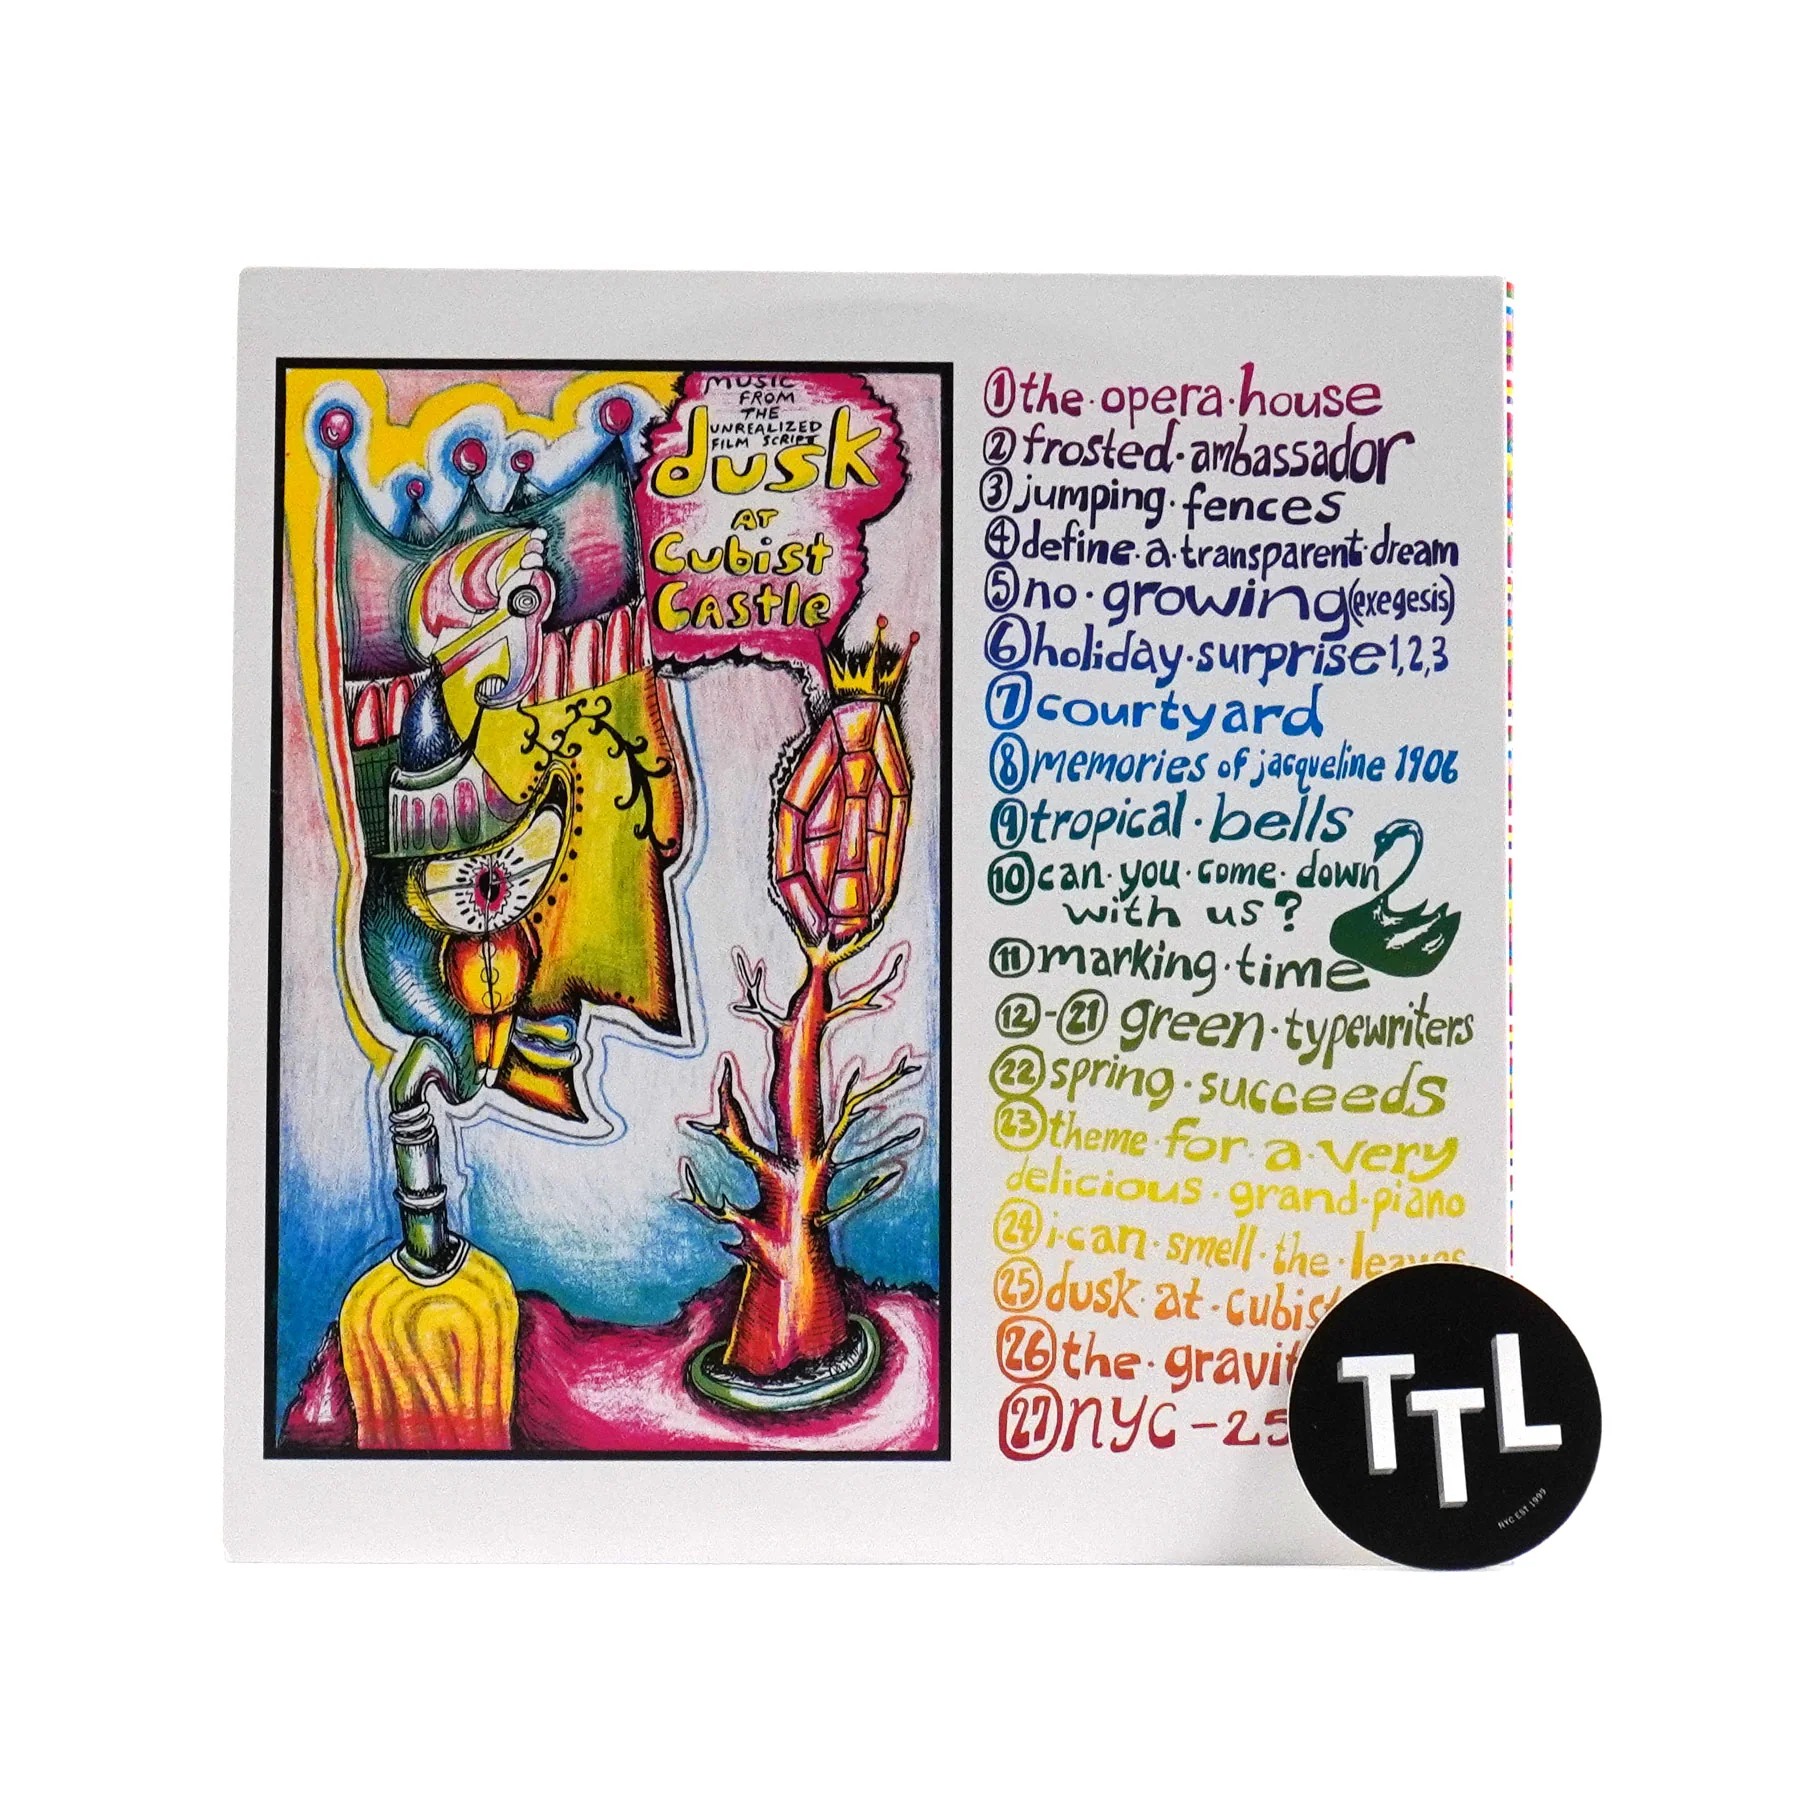 MUSIC
FROM
THE
UNREALIZED
FILM SCRIPT
dusk
AT
Cubist
Castle
1 the·opera·house
2 frosted·ambassador
3 jumping·fences
4 define·a·transparent·dream
5 no·growing(exegesis)
6 holiday·surprise 1,2,3
7 courtyard
8 memories of jacqueline 1906
9 tropical·bells
10 can·you·come·down
with us?
11 marking·time
12-21 green·typewriters
22 spring·succeeds
23 theme·for·a·very
delicious·grand·piano
24 i·can·smell·the·leaves
25 dusk·at·cubist
26 the·gravit
27 NYC-25
TTL
NYC EST 1999